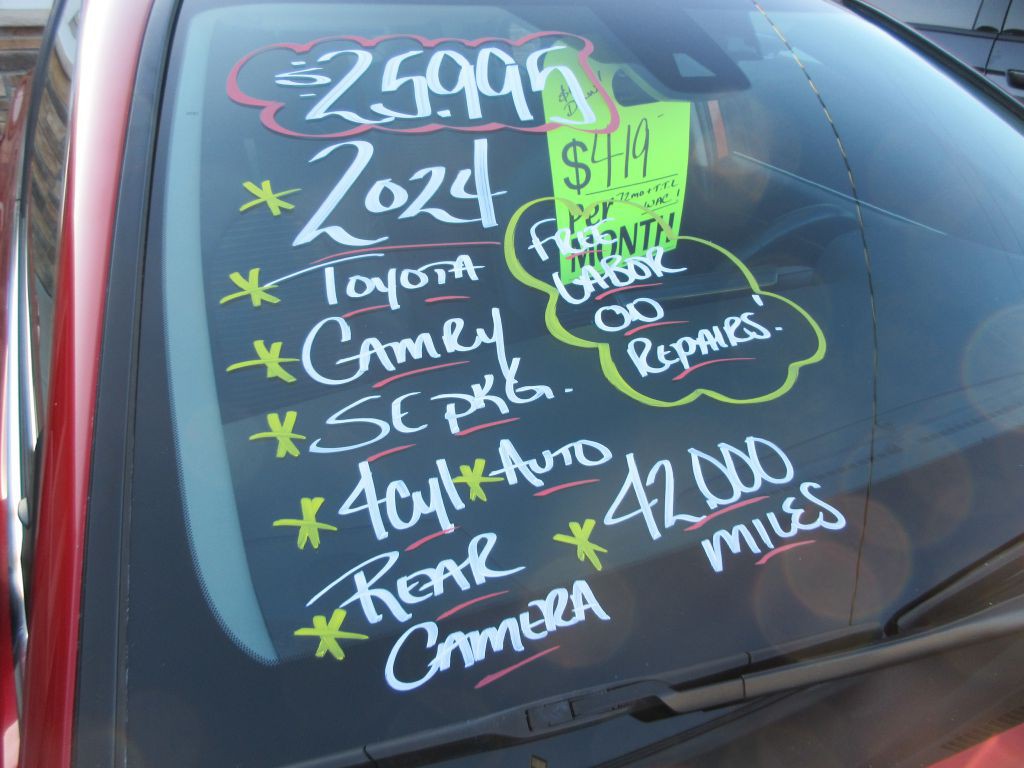 $25.995
2024
TOYOTA
CAMRY
SE PKG.
4CYL AUTO
REAR
CAMERA
42.000
MILES
$419
72mo + T.T.L
W.A.C
PER
MONTH
FREE
LABOR
ON
REPAIRS!